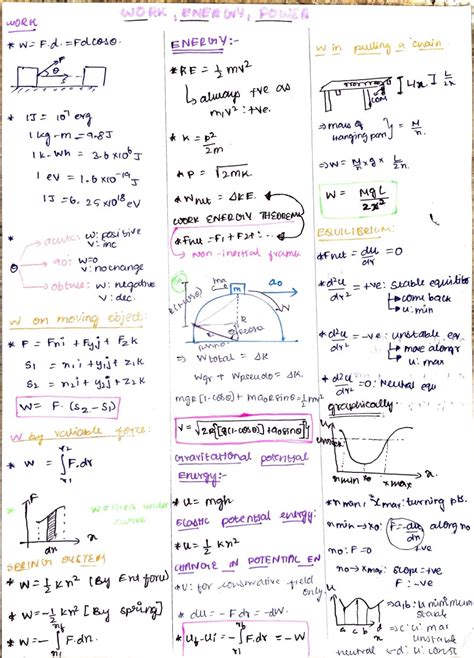 WORK, ENERGY, POWER
WORK
* W = F.d. = Fdcosθ.
F
θ
s
* 1J = 10⁷ erg
1kg-m = 9.8J
1k-Wh = 3.6x10⁶J
1eV = 1.6x10⁻¹⁹J
1J = 6.25x10¹⁸eV
*
θ
acute: W: positive
v: inc
90: W=0
v: no change
obtuse: W: negative
v: dec.
W on moving object:
* F = Fxi + Fyj + Fzk
S₁ = x1i + y1j + z1k
S₂ = x2i + y2j + z2k
W = F.(S₂-S₁)
W by variable force:
* W = ∫F.dr
F
W = Area under curve
dx
x
SPRING SYSTEM
* W = ½ kx² [By Ext force]
* W = -½ kx² [By spring]
* W = -∫F.dx.
ENERGY:-
* KE = ½ mv²
↳ always +ve as
m, v²: +ve.
* K = p²/2m
* P = √2mK
* Wnet = ΔKE.
WORK ENERGY THEOREM
* Fnet = F1 + F2 + ...
↳ non-inertial frame
m
a₀
R
⇒ Wtotal = ΔK
Wgr + Wpseudo = ΔK
mgR[1-cosθ] + ma₀Rsinθ = ½mv²
V = √2R[[g(1-cosθ)]+a₀sinθ]
Gravitational potential
Energy:-
* U = mgh
Elastic potential energy:
* U = ½ Kx²
CHANGE IN POTENTIAL EN
* U: for conservative field
only
* dU = -F.dr = -dW.
* Uf-Ui = -∫F.dr = -W
W in pulling a chain
L/n
⇒ mass of
hanging part } = M/n.
⇒ W = M/n x g x L/2n.
W = MgL/2n²
EQUILIBRIUM:
* Fnet = du/dr = 0
* d²u/dr² = +ve: stable equilib
↳ come back
u: min
* d²u/dr² = -ve: unstable eq
↳ move along r
u: max
* d²u/dr² = 0: Neutral equ
graphically.
u
x min
x₀
x max
x.
* x min, x max: turning pts.
x min → x₀: F = -du along x₀
+ve
x₀: F = 0
x₀ → x max: slope = +ve
F: -ve
u
a
b
c
d
x
→ a, b: u minimum
stable
→ c: u: max
unstable
neutral ← d: u: const